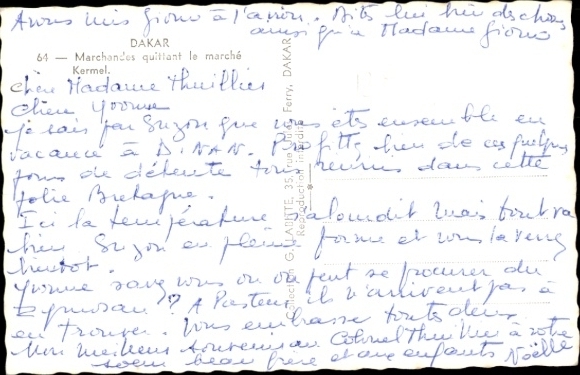 Avons mis Giorno à l'avion. Dites lui bien des choses
ainsi qu'à Madame Giorno
DAKAR
64 — Marchandes quittant le marché
Kermel.
Chère Madame Thuillier
Chère Yvonne
je sais par Suzon que vous êtes ensemble en
vacance à DINAN. Profitez bien de ces quelques
jours de détente tous réunis dans cette
jolie Bretagne.
Ici la température s'alourdit mais tout va
bien Suzon en pleine forme et vous la verrez
bientôt.
Yvonne savez vous où on peut se procurer du
? A Pasteur ils n'arrivent pas à
en trouver. Vous embrasse toutes deux
Mon meilleur souvenir au Colonel Thuillier à votre
beau frère et aux enfants Noëlle
Collection G. LABITTE, 35, rue Jules Ferry, DAKAR
Reproduction interdite